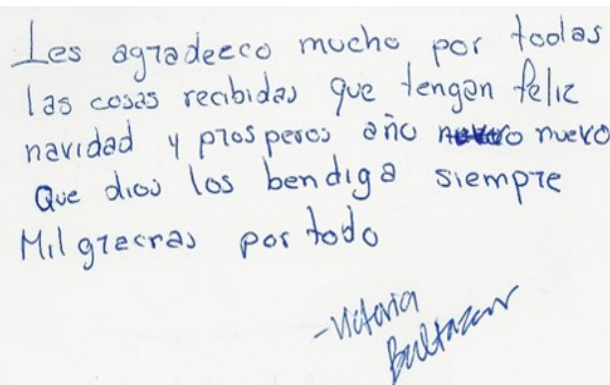 Les agradeeco mucho por todas
las cosas recibidas que tengan feliz
navidad y prosperos año nuevo
Que dios los bendiga siempre
Mil grecras por todo
-Victoria
Baltazar